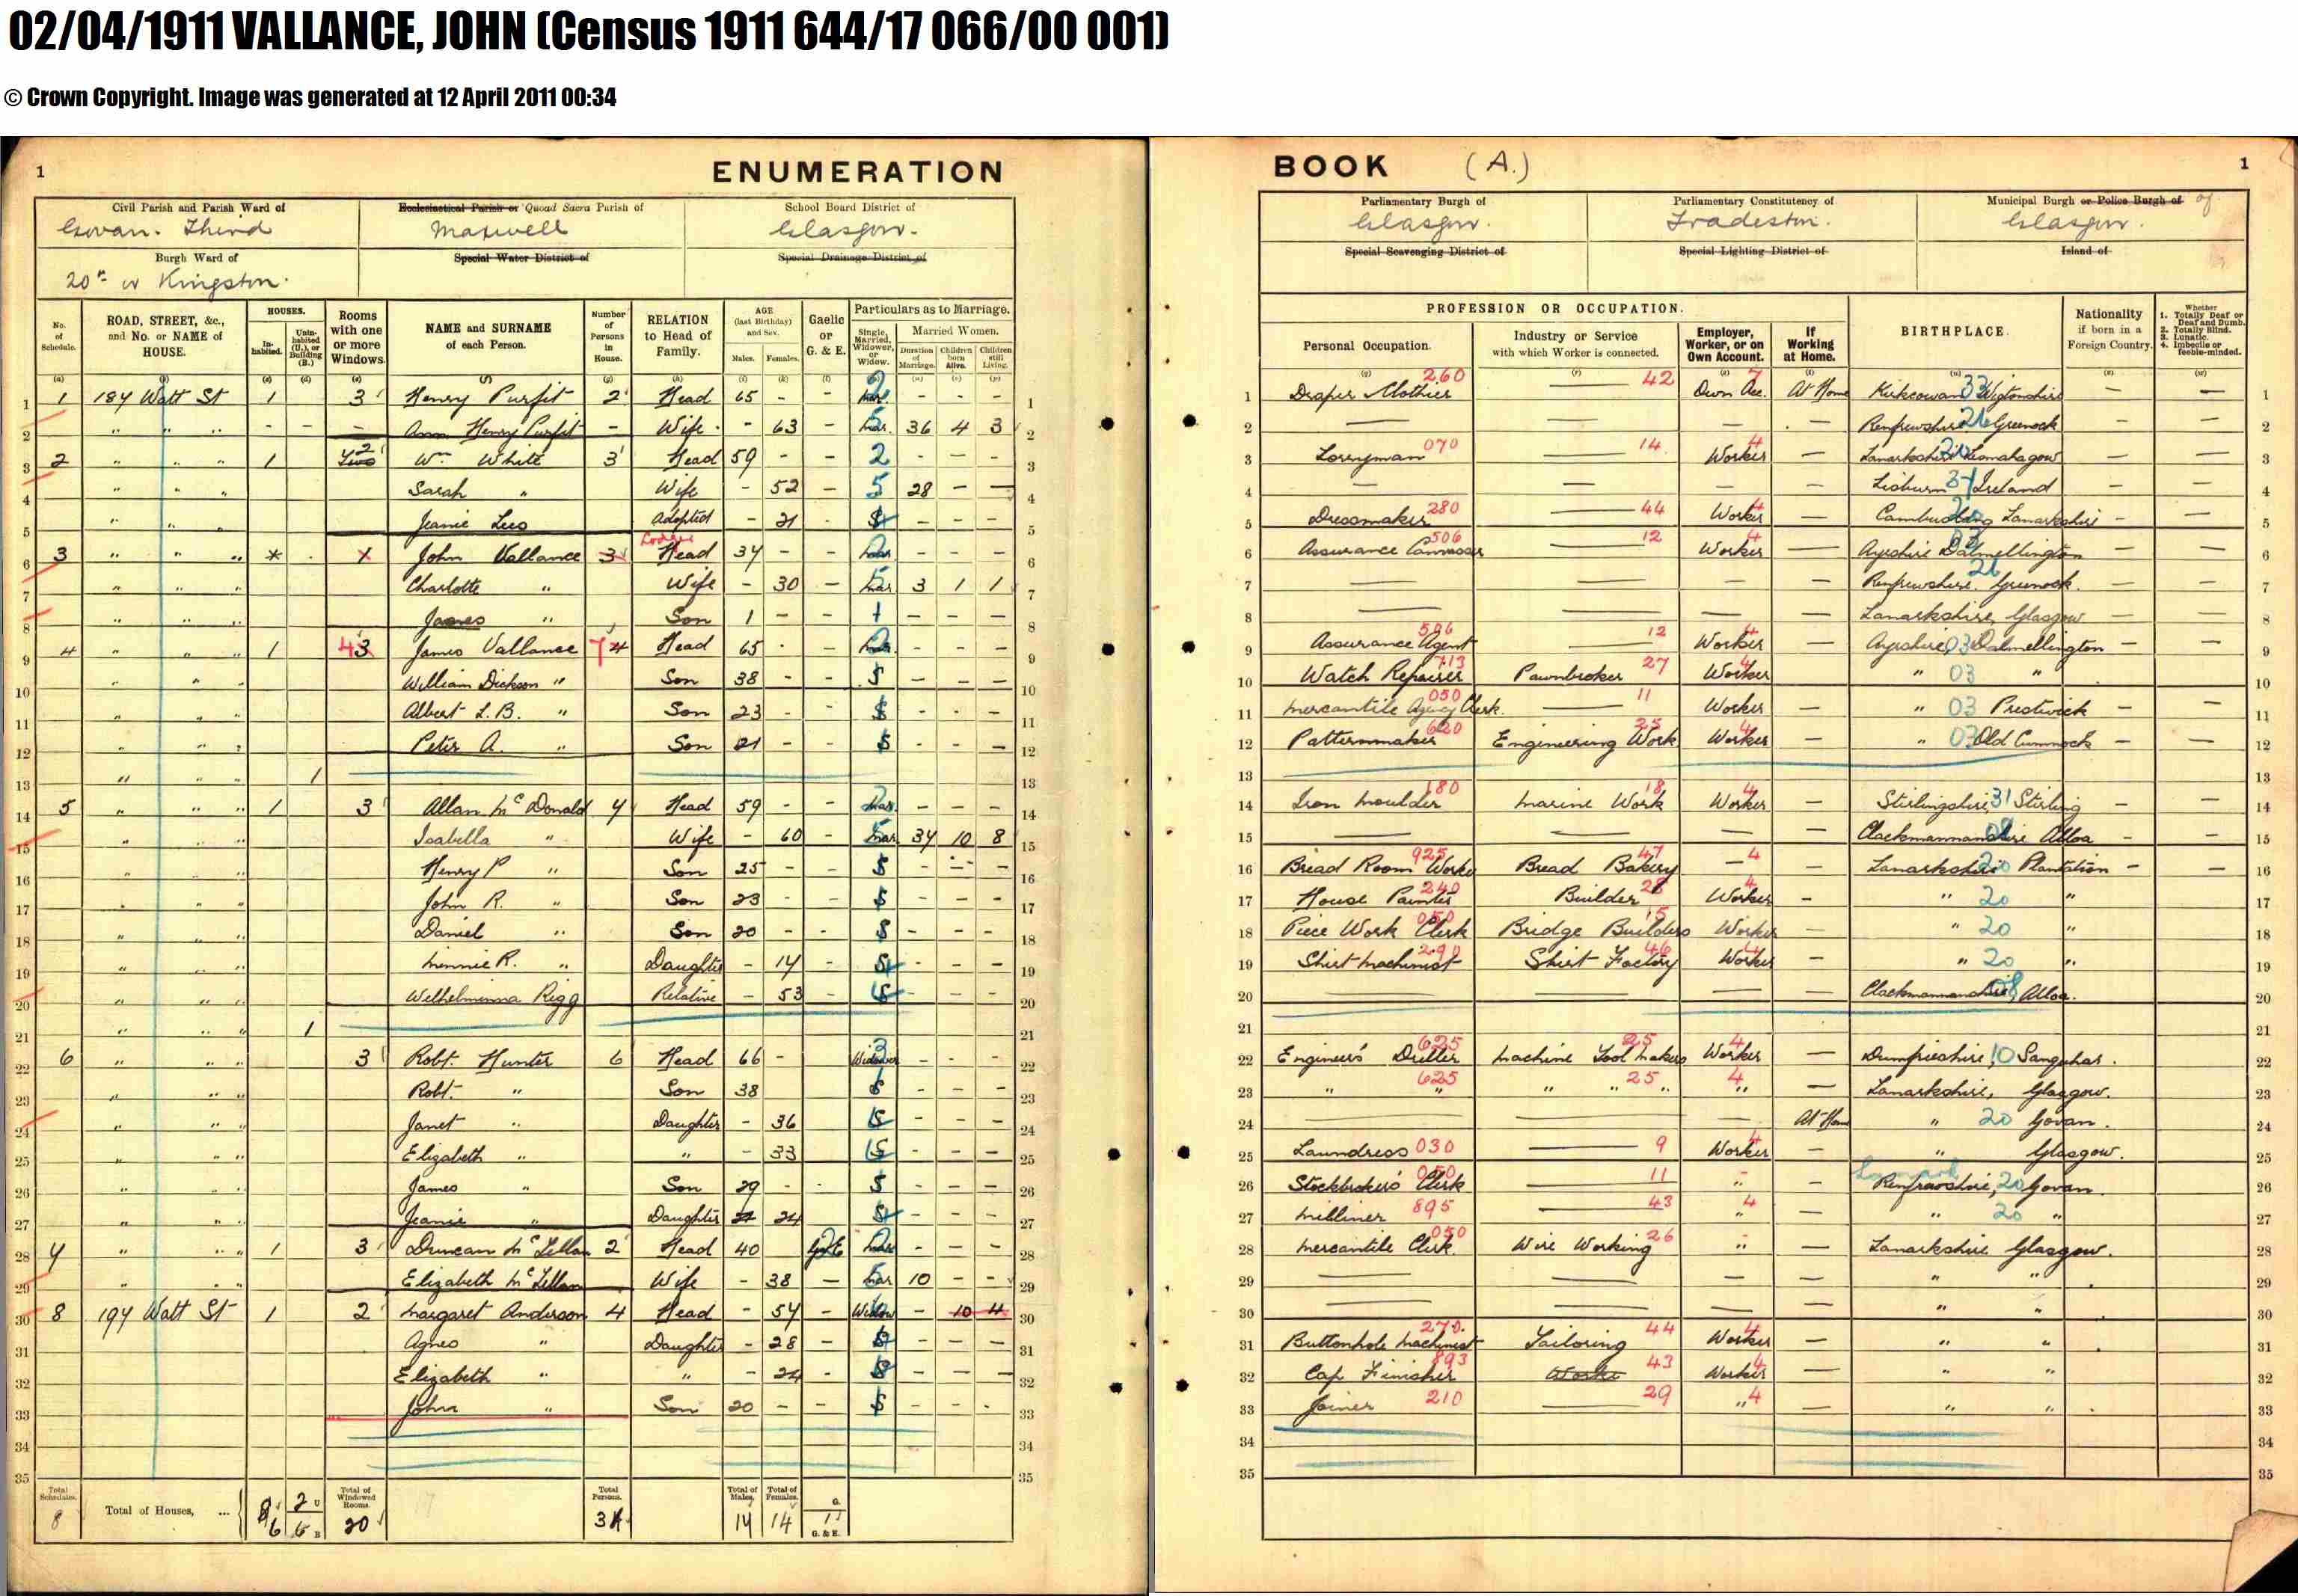 02/04/1911 VALLANCE, JOHN (Census 1911 644/17 066/00 001)
© Crown Copyright. Image was generated at 12 April 2011 00:34
1 ENUMERATION BOOK (A.) 1
Civil Parish and Parish Ward of Ecclesiastical Parish or Quoad Sacra Parish of School Board District of Parliamentary Burgh of Parliamentary Constituency of Municipal Burgh or Police Burgh of
Govan. Third Maxwell Glasgow. Glasgow. Tradeston. Glasgow.
Burgh Ward of Special Water District of Special Drainage District of Special Scavenging District of Special Lighting District of Island of
20th or Kingston.
No. of Schedule. ROAD, STREET, &c., and No. or NAME of HOUSE. HOUSES. Inhabited. Uninhabited (U.), or Building (B.) Rooms with one or more Windows. NAME and SURNAME of each Person. Number of Persons in House. RELATION to Head of Family. AGE (last Birthday) and Sex. Males. Females. Gaelic or G. & E. Particulars as to Marriage. Single, Married, Widower, or Widow. Married Women. Duration of Marriage. Children born Alive. Children still Living.
PROFESSION OR OCCUPATION. Personal Occupation. Industry or Service with which Worker is connected. Employer, Worker, or on Own Account. If Working at Home. BIRTHPLACE. Nationality if born in a Foreign Country. Whether 1. Totally Deaf or Deaf and Dumb. 2. Totally Blind. 3. Lunatic. 4. Imbecile or feeble-minded.
1 1 187 Watt St 1 3 Henry Purfit 2 Head 65 - - Mar. - - - 1 Draper Clothier 260 — 42 Own Acc. 7 At Home Kirkcowan 33 Wigtonshire — — 1
2 " " " - - — Ann Henry Purfit - Wife - 63 - Mar. 36 4 3 2 — — — - — Renfrewshire 26 Greenock — — 2
3 2 " " " 1 2 Wm White 3 Head 59 - - 2 - - - 3 Lorryman 070 — 14 Worker 4 — Lanarkshire 20 Lesmahagow — — 3
4 " " " Sarah " Wife - 52 - 5 28 - — 4 — — — — Lisburn 37 Ireland — — 4
5 " " " Jeanie Lees Adopted - 21 - S - - - 5 Dressmaker 280 — 44 Worker 4 — Cambuslang Lanarkshire - — 5
6 3 " " " * X John Vallance 3 Lodger Head 34 - - Mar - - - 6 Assurance Canvasser 506 — 12 Worker 4 — Ayrshire 03 Dalmellington — — 6
7 " " " Charlotte " Wife - 30 - Mar 3 1 1 7 — — — — Renfrewshire. 26 Greenock. — — 7
8 " " " James " Son 1 - - 1 - - - 8 — — — — Lanarkshire, Glasgow — — 8
9 4 " " " 1 43 James Vallance 7 4 Head 65 - Mar - - - 9 Assurance Agent 506 — 12 Worker 4 — Ayrshire, 03 Dalmellington - — 9
10 " " William Dickson " Son 38 - - S - - - 10 Watch Repairer 713 Pawnbroker 27 Worker 4 — " 03 " — — 10
11 " " " Albert L. B. " Son 23 - - S - - - 11 Mercantile Agency Clerk. 050 — 11 Worker — " 03 Prestwick — — 11
12 " " " Peter A. " Son 21 - - S - - - 12 Patternmaker 620 Engineering Work 25 Worker 4 — " 03 Old Cumnock - — 12
13 " " " 1 13 13
14 5 " " " 1 3 Allan McDonald 7 Head 59 - - Mar. - - - 14 Iron Moulder 180 Marine Work 18 Worker 4 — Stirlingshire, 31 Stirling — — 14
15 " " " Isabella " Wife - 60 - Mar. 34 10 8 15 — — — — Clackmannanshire 08 Alloa - — 15
16 " " Henry P " Son 25 - - S - - - 16 Bread Room Worker 925 Bread Bakery 47 — 4 — Lanarkshire 20 Plantation - — 16
17 " " John R. " Son 23 - - S - - - 17 House Painter 240 Builder 28 Worker 4 - " 20 " 17
18 " " " Daniel " Son 20 - - S - - - 18 Piece Work Clerk 050 Bridge Builders 15 Worker — " 20 " 18
19 " " " Minnie R. " Daughter - 14 - S - - - 19 Shirt Machinist 290 Shirt Factory 46 Worker 4 — " 20 " 19
20 " " " Welhelminna Rigg Relative - 53 - S - - - 20 — — — — Clackmannanshire, 08 Alloa. 20
21 " " " 1 21 21
22 6 " " " 3 Robt. Hunter 6 Head 66 - Widower 3 - - - 22 Engineers' Driller 625 Machine Tool Makers 25 Worker 4 — Dumfriesshire, 10 Sanquhar. 22
23 " " " Robt. " Son 38 S - - - 23 " 625 " " " 25 " 4 — Lanarkshire, Glasgow. 23
24 " " " Janet " Daughter - 36 S - - - 24 — — At Home " 20 Govan. 24
25 " " " Elizabeth " " - 33 S - - - 25 Laundress 030 — 9 Worker 4 — " Glasgow. 25
26 " " " James " Son 29 - - S - - - 26 Stockbrokers' Clerk 050 — 11 " — Lanark Renfrewshire, 20 Govan. 26
27 " " " Jeanie " Daughter 24 S - - - 27 Milliner 895 — 43 " 4 — " 20 " 27
28 7 " " " 1 3 Duncan McLellan 2 Head 40 G&E Mar - - - 28 Mercantile Clerk. 050 Wire Working 26 " — Lanarkshire Glasgow. 28
29 " " " Elizabeth McLellan Wife - 38 - Mar 10 - - 29 — — — — " " 29
30 8 194 Watt St 1 2 Margaret Anderson 4 Head - 54 - Widow - 10 4 30 — — — — " " 30
31 Agnes " Daughter - 28 - S - - - 31 Buttonhole Machinist 270. Tailoring 44 Worker 4 — " " 31
32 Elizabeth " " - 24 - S - - - 32 Cap Finisher 893 Worker 43 Worker 4 — " " 32
33 John " Son 20 - - S - - - 33 Joiner 210 — 29 " 4 — " " 33
34 34 34 34
35 35 35 35
Total Schedules. 8 Total of Houses, ... 6 2 U 6 B Total of Windowed Rooms. 20 Total Persons. Total of Males. 14 Total of Females. 14 G. 1 G. & E.